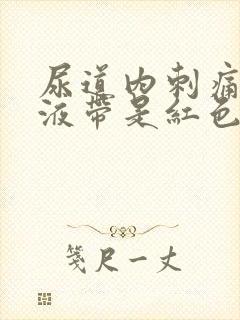 尿道内刺痛
液带是红色
笺尺一丈